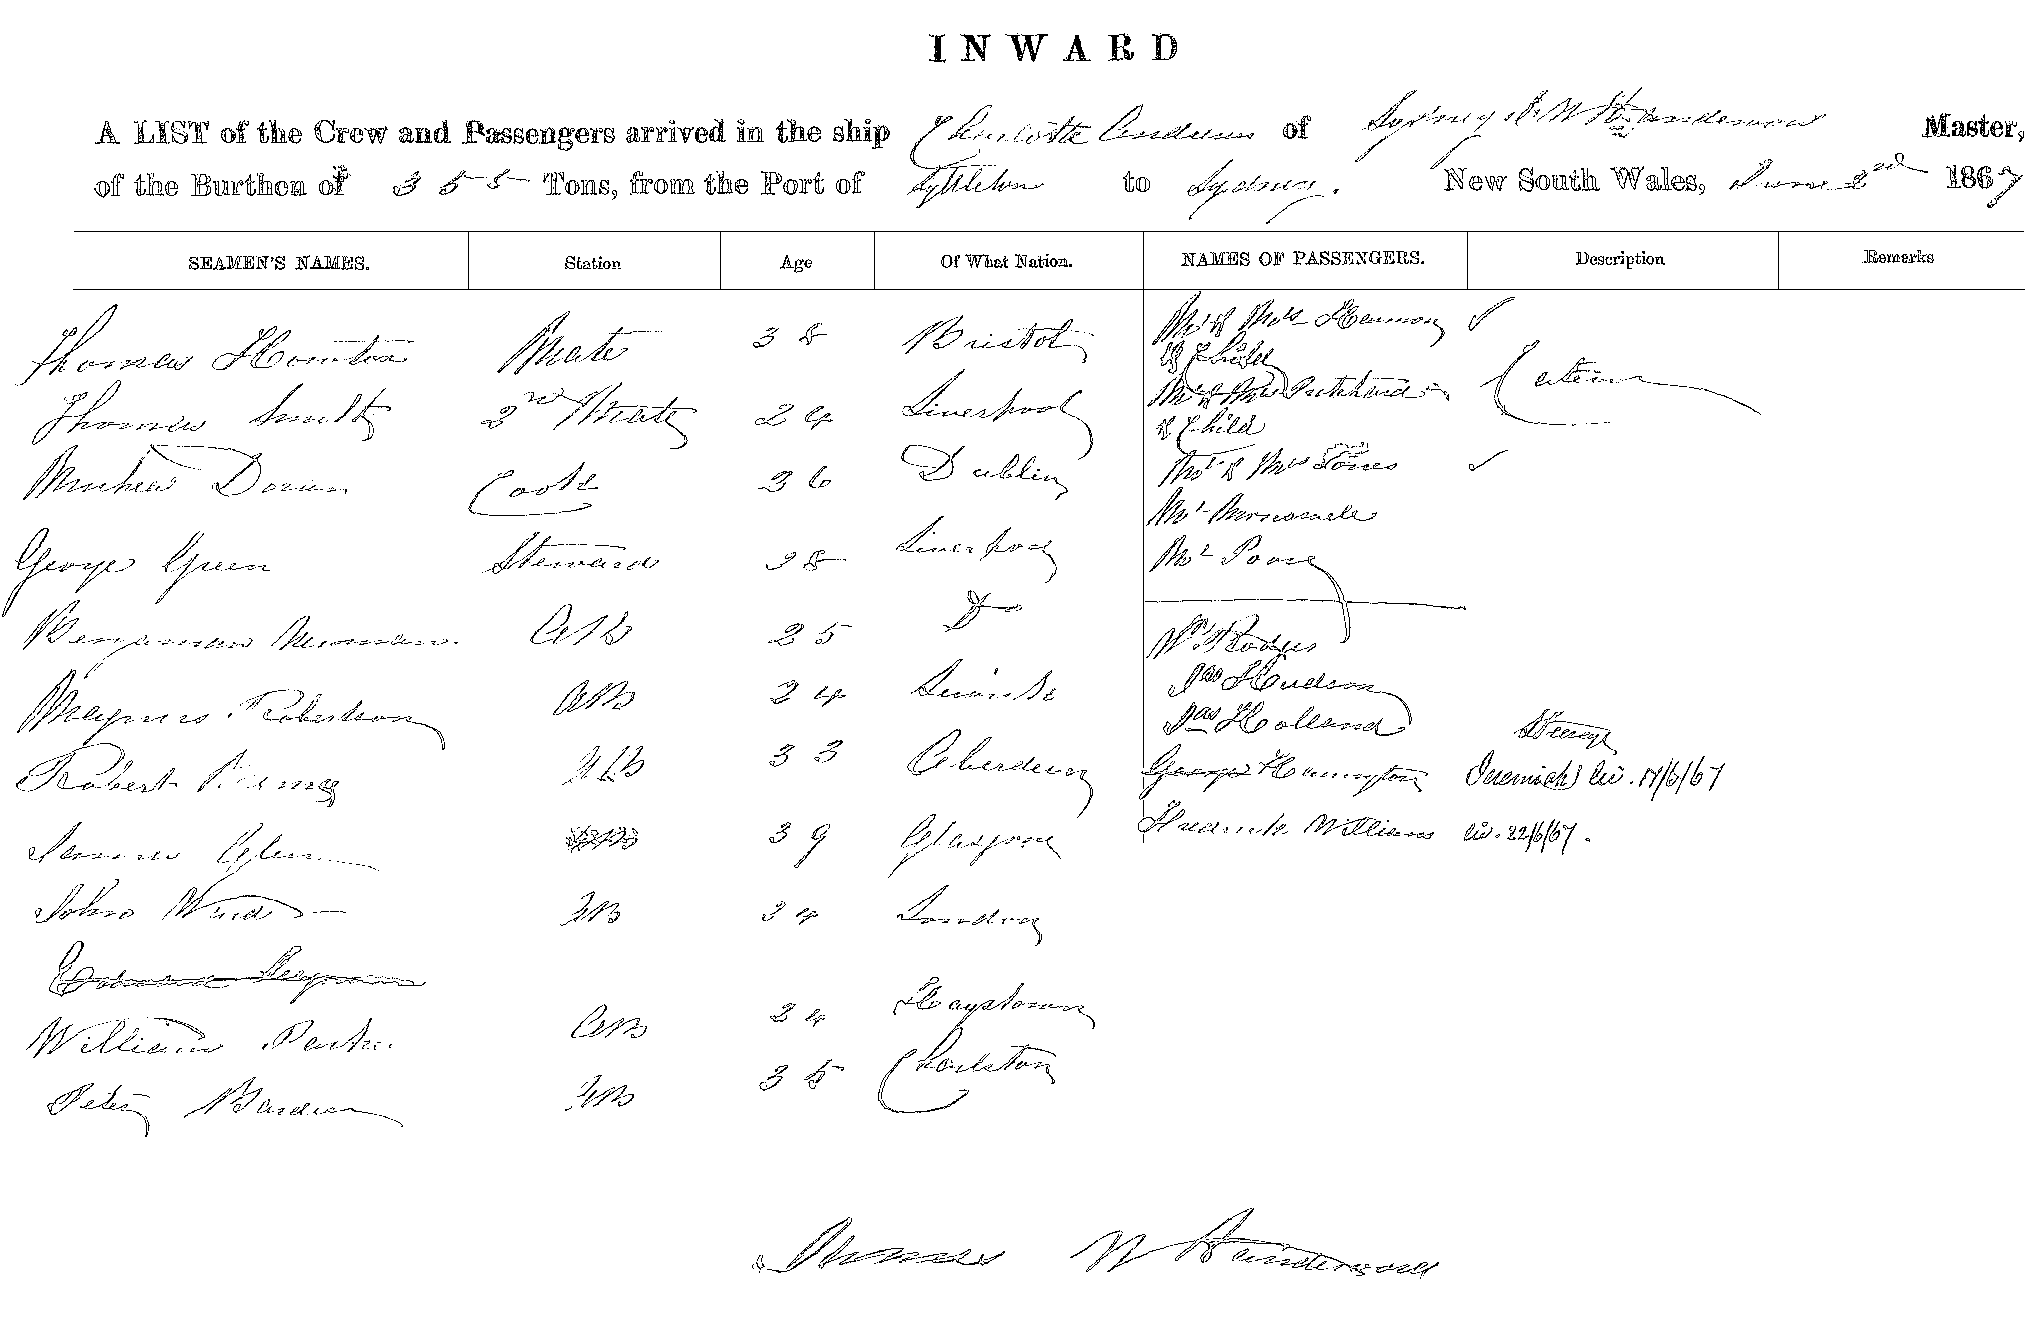 INWARD
A LIST of the Crew and Passengers arrived in the ship Charlotte Andrews of Sydney J W Henderson Master,
of the Burthen of 355 Tons, from the Port of Lyttleton to Sydney. New South Wales, June 2nd 1867
SEAMEN'S NAMES. Station Age Of What Nation. NAMES OF PASSENGERS. Description Remarks
Thomas Mate 38 Bristol Mr & Mrs Harmon
& Child
Thomas Smith 2nd Mate 24 Liverpool Mr & Mrs Pritchard Cabin
& Child
Doran Cook 26 Dublin Mr & Mrs Jones
George Green Steward 28 Liverpool Mr
Mr Poore
Benjaman Newman. AB 25 Do
Wm Rodges
Magnus Robertson AB 24 Jas Hudson
Jas Holland Steerage
Robert AB 33 Aberdeen George Harrington Jeremiah liv. 17/6/67
James Glen 39 Glasgow Fredrick Williams liv. 22/6/67.
John Wird AB 34 London
Edward
William Parker AB 24 Haystown
Peter Barden AB 35 Charlston
James W Henderson